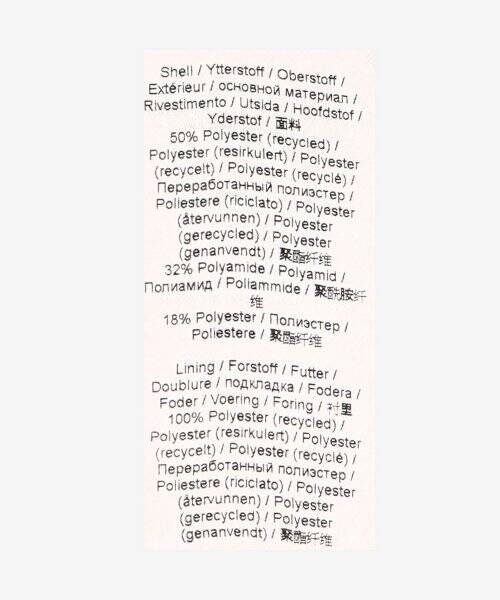 Shell / Ytterstoff / Oberstoff /
Extérieur / основной материал /
Rivestimento / Utsida / Hoofdstof /
Yderstof / 面料
50% Polyester (recycled) /
Polyester (resirkulert) / Polyester
(recycelt) / Polyester (recyclé) /
Переработанный полиэстер /
Poliestere (riciclato) / Polyester
(återvunnen) / Polyester
(gerecycled) / Polyester
(genanvendt) / 聚酯纤维
32% Polyamide / Polyamid /
Полиамид / Poliammide / 聚酰胺纤
维
18% Polyester / Полиэстер /
Poliestere / 聚酯纤维
Lining / Forstoff / Futter /
Doublure / подкладка / Fodera /
Foder / Voering / Foring / 衬里
100% Polyester (recycled) /
Polyester (resirkulert) / Polyester
(recycelt) / Polyester (recyclé) /
Переработанный полиэстер /
Poliestere (riciclato) / Polyester
(återvunnen) / Polyester
(gerecycled) / Polyester
(genanvendt) / 聚酯纤维